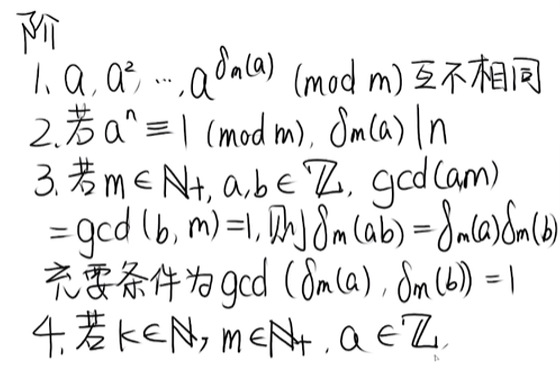 阶
1. a, a², ⋯, a^{δₘ(a)} (mod m) 互不相同
2. 若 aⁿ ≡ 1 (mod m), δₘ(a) | n
3. 若 m ∈ N₊, a,b ∈ ℤ, gcd(a,m)
= gcd(b, m) = 1, 则 δₘ(ab) = δₘ(a)δₘ(b)
充要条件为 gcd (δₘ(a), δₘ(b)) = 1
4. 若 k ∈ N, m ∈ N₊, a ∈ ℤ,